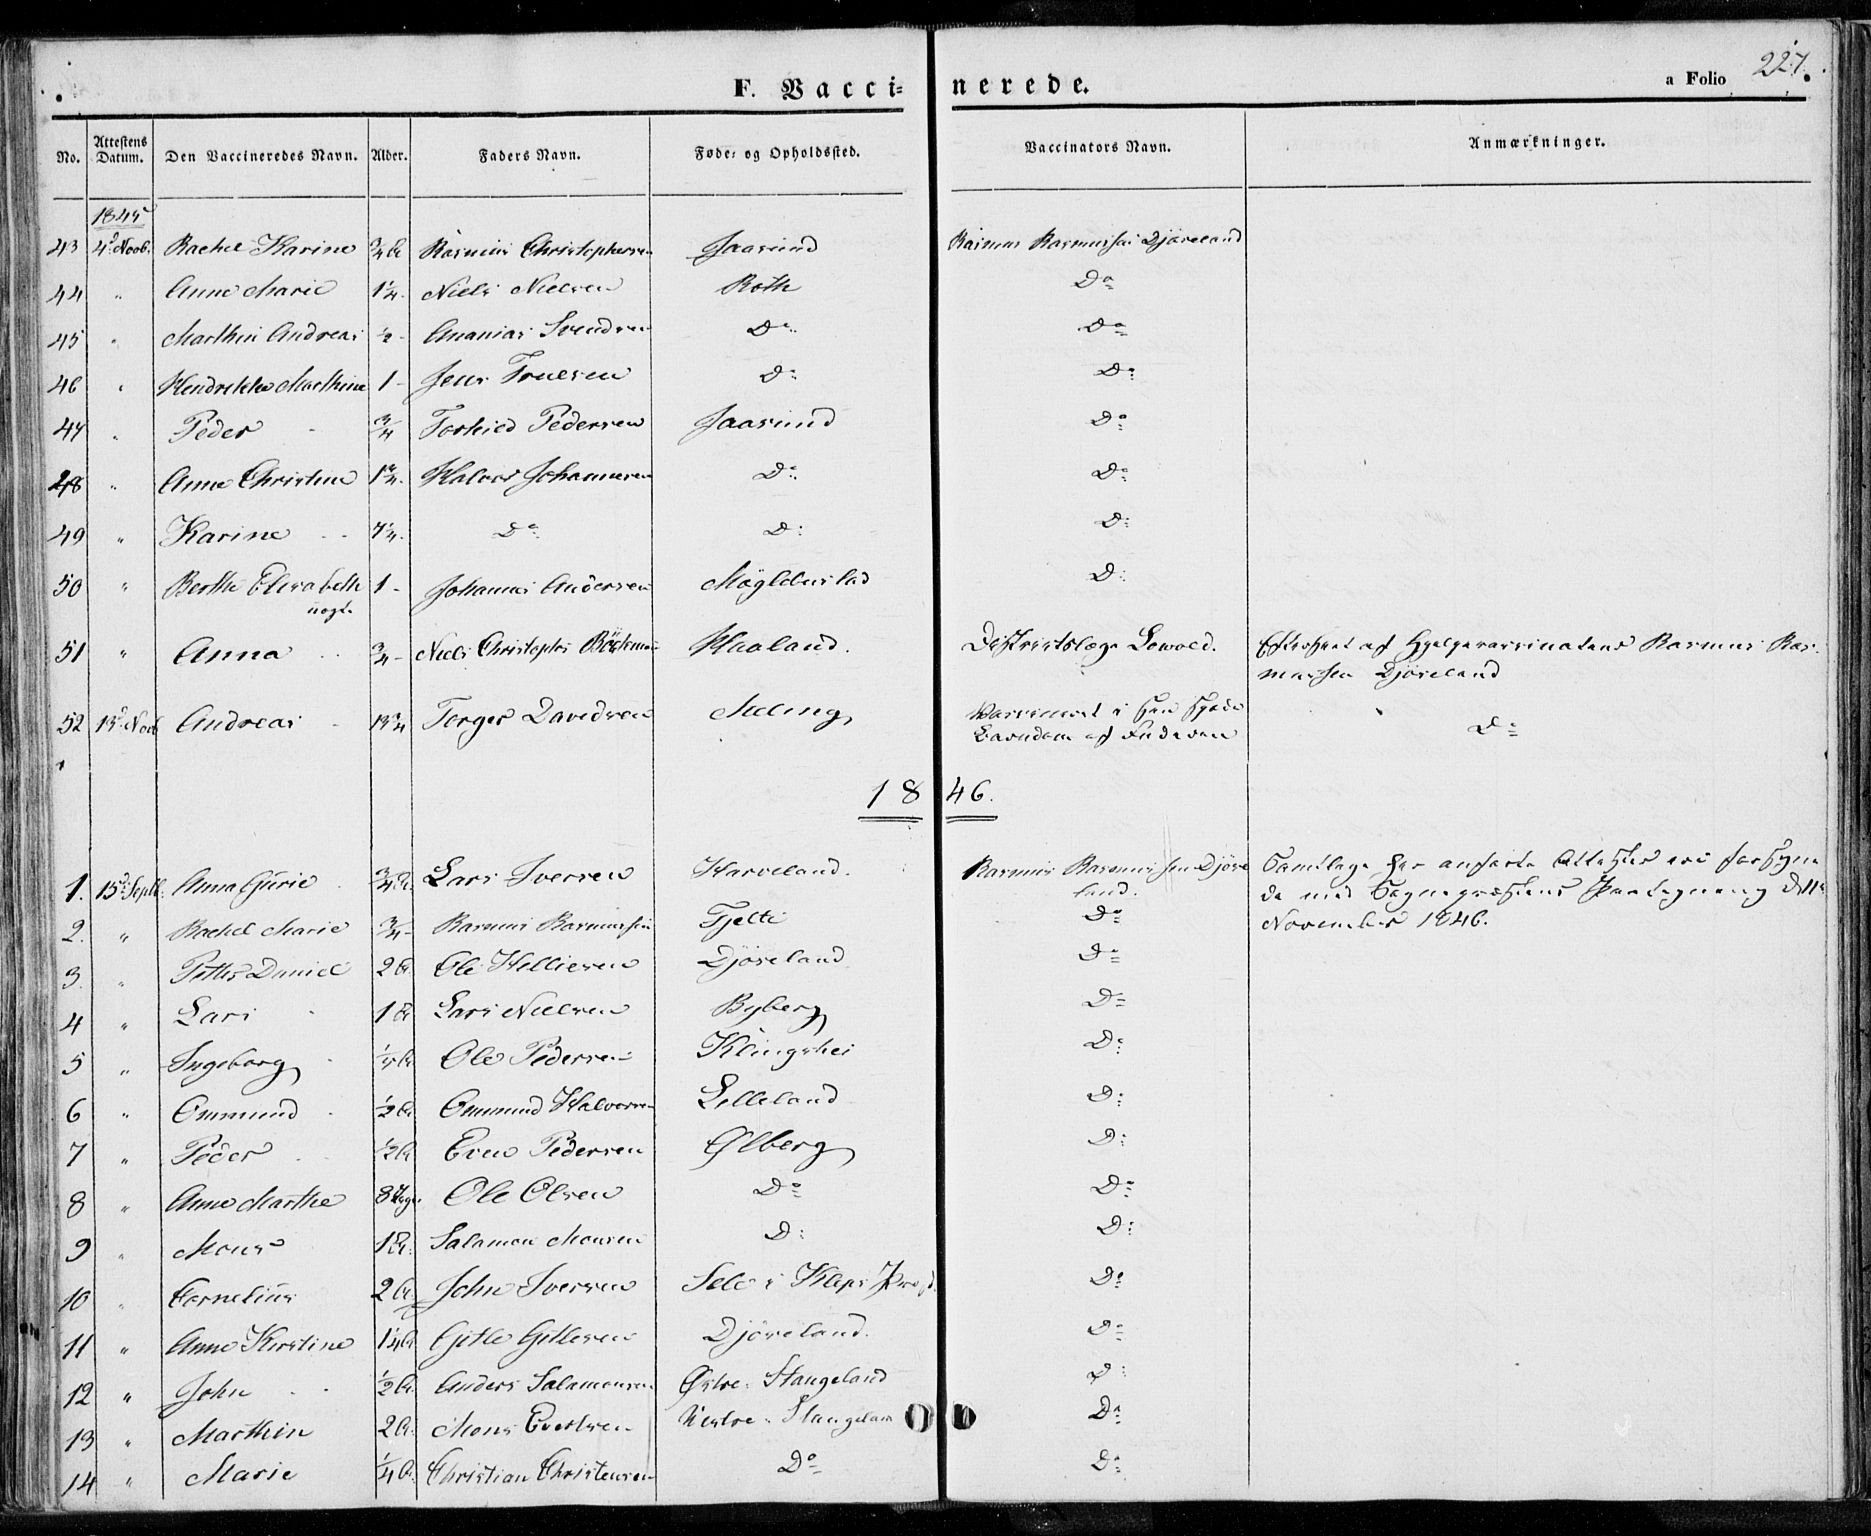 F. Vaccinerede. a Folio 227.
No. Attestens Datum. Den Vaccineredes Navn. Alder. Faders Navn. Føde- og Opholdssted. Vaccinators Navn. Anmærkninger.
1845
43 4de Novb. Rachel Karine 3/4 A Rasmus Christophersen Jaasund Rasmus Rasmussen Djøseland
44 " Anne Marie 1 1/4. Niels Nielsen Roth Do
45 " Marthin Andreas 1/2 - Ananias Svendsen Do Do
46 " Hendrikke Marthine 1 - Jens Truesen Do Do
47 " Peder - 3/4 Torkild Pedersen Jaasund Do
48 " Anne Christine 1 3/4. Halvor Johannesen Do Do
49 " Karine - - 7 1/4. Do Do Do
50 " Berthe Elisabeth 1 - Johannes Andersen Møglebustad Do
uægt.
51 " Anna - - 3/4 - Niels Christopher Böckman Haaland. Districtslæge Lewold. Efterseet af Hjelpevaccinateur Rasmus Ras-
mussen Djøseland
52 15de Novb Andreas - 13 3/4 Torger Davidsen Meling Vaccineret i sin spæde
Barndom af Faderen Do
1846.
1. 15de Septb. Anna Gurie - 3/4 A. Lars Iversen Harveland. Rasmus Rasmussen Djøse Samtlige her anførte Attester ere forsyne
land. de med Sognepræstens Paategning d. 11te
2. " Rachel Marie 3/4 - Rasmus Rasmussen Tjelte Do November 1846.
3. " Petter Daniel 2 A. Ole Helliesen Djøseland Do
4 " Lars - 1 A Lars Nielsen Byberg Do
5 " Ingeborg - A. Ole Pedersen Klingshei Do
6 " Ommund - 1/2 A. Ommund Halvorsen Lilleland Do
7 " Peder - - 1/2 A Even Pedersen Ølberg Do
8 " " Anne Marthe 8 Uger Ole Olsen Do Do
9 " Mons 1 A. Salamon Monsen Do Do
10 " Cornelius 2 A. John Iversen Sele i Kleps Præstg. Do
11 " Anne Kirstine 1 1/4 A. Gitle Gitlesen Djøseland. Do
12 " John - - 1/2 A. Anders Salamonsen Østre-Stangeland Do
13 " Marthin 2 A. Mons Evertsen Vestre-Stangelan Do
14 " Marie 1/4 A. Christian Christensen Do Do